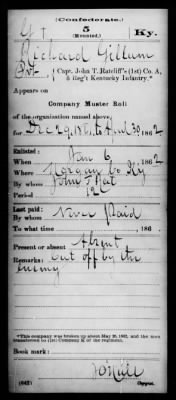 (Confederate.)
G 5 Ky.
(Mounted.)
Richard Gillum
Pvt, Capt. John T. Ratcliff's (1st) Co. A,
5 Reg't Kentucky Infantry.*
Appears on
Company Muster Roll
of the organization named above,
for Dec 29, 1861, to April 30, 1862
Enlisted:
When Jan 6, 1862
Where Morgan Co Ky
By whom John T
Period 12
Last paid:
By whom Never Paid
To what time , 186 .
Present or absent Absent
Remarks: Cut off by the
enemy
*This company was broken up about May 20, 1862, and the men
transferred to (1st) Company K of the regiment.
Book mark:
(642) Copyist.